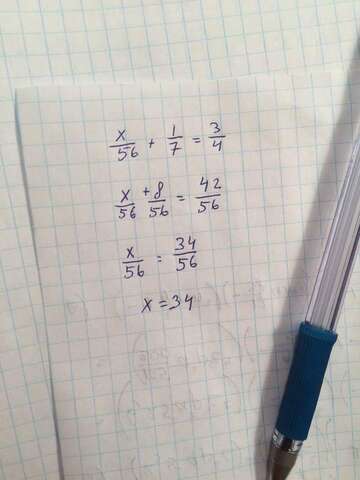 x/56 + 1/7 = 3/4
x/56 + 8/56 = 42/56
x/56 = 34/56
x = 34